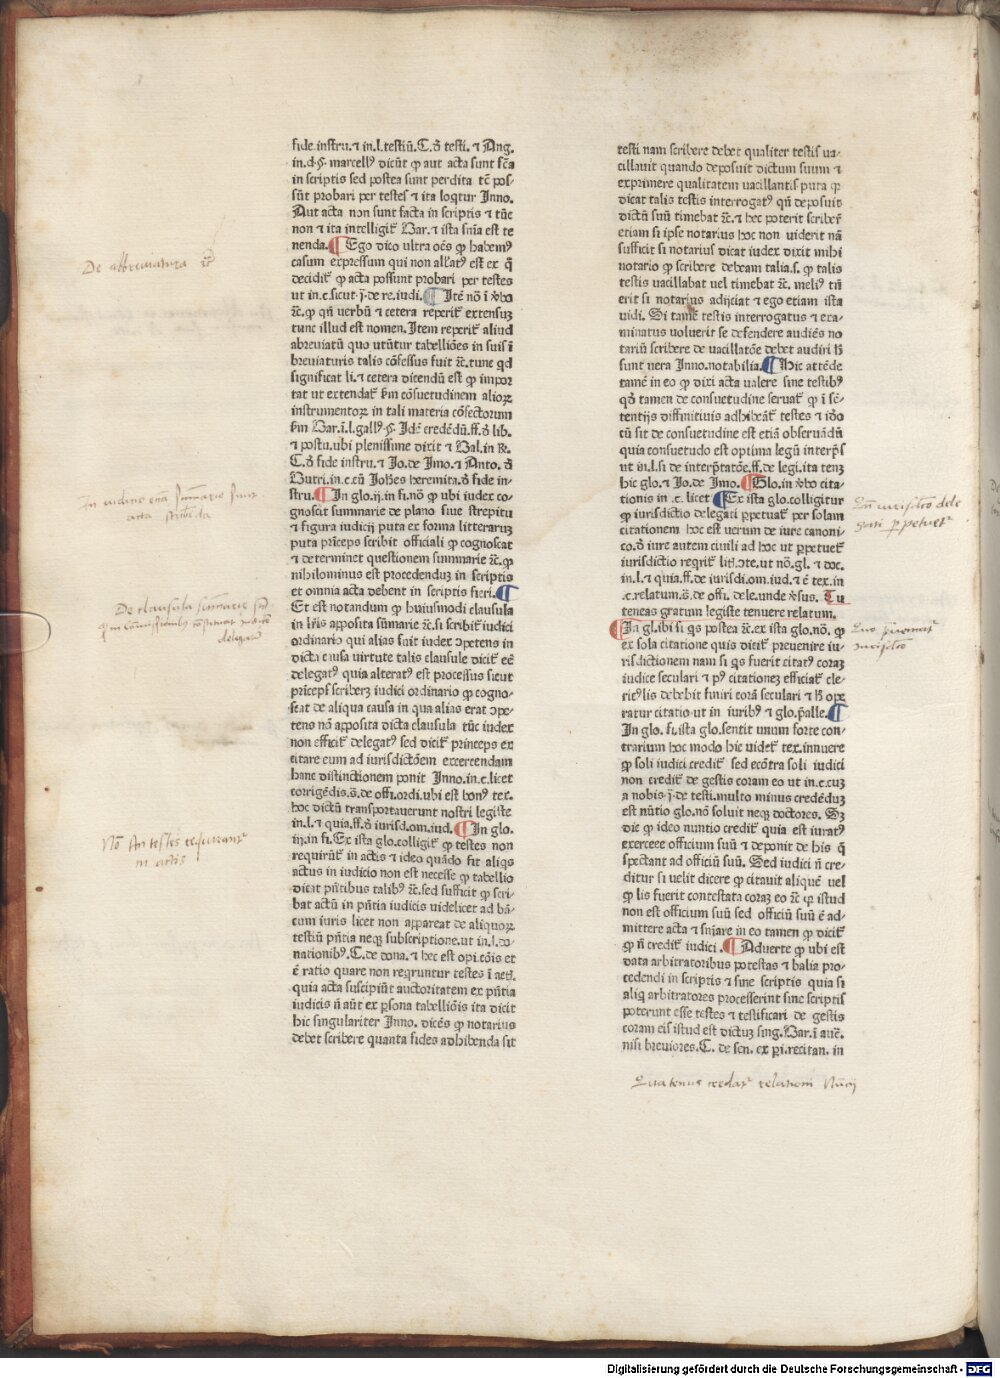 fide.instru.⁊ in.l.testiū.C.ð testi.⁊ Ang.
in.d.§.marcellꝰ dicūt ꝙ aut acta sunt fc̄a
in scriptis sed postea sunt perdita tē pos-
sūt probari per testes ⁊ ita loq̄tur Inno.
Aut acta non sunt facta in scriptis ⁊ tūc
non ⁊ ita intelligit̄ Bar.⁊ ista sn̄ia est te
nenda.¶ Ego dico ultra oēs ꝙ habemꝰ
casum expressum qui non all'at̄ est ex q̄
decidit̄ ꝙ acta possunt probari per testes
ut in.c.sicut.j.de re.iudi.¶ Itē nō ī ƀbo
⁊c̄.ꝙ qn̄ uerbū ⁊ cetera reperit̄ extensuꝫ
tunc illud est nomen.Item reperit̄ aliud
abreuiatū quo utūtur tabelliōes in suis ī
breuiaturis talis cōfessus fuit ⁊c̄.tunc qd
significat li.⁊ cetera dicendū est ꝙ impor
tat ut extendat̄ ẜm cōsuetudinem alioꝝ
instrumentoꝝ in tali materia cōfectorum
ẜm Bar.ī.l.gallꝰ.§.Idē credēdū.ff.ð lib.
⁊ postu.ubi plenissime dixit ⁊ Bal.in R.
C.ð fide instru.⁊ Jo.de Imo.⁊ Anto.ð
Butri.in.c.cū Joħes heremita.ð fide in-
stru.¶ In glo.ij.in fi.nō ꝙ ubi iudex co-
gnoscit summarie de plano siue strepitu
⁊ figura iudicij puta ex forma litteraruꝫ
puta prīceps scribit officiali ꝙ cognoscat
⁊ determinet questionem summarie ⁊c̄.ꝙ
nihilominus est procedenduꝫ in scriptis
et omnia acta debent in scriptis fieri.¶
Et est notandum ꝙ huiusmodi clausula
in lr̄is apposita sūmarie ⁊c̄.si scribit̄ iudici
ordinario qui alias fuit iudex ↄpetens in
dicta causa virtute talis clausule dicit̄ eē
delegatꝰ quia alteratꝰ est processus sicut
prīceps̄ scribeꝫ iudici ordinario ꝙ cogno-
scat de aliqua causa in qua alias erat ↄpe-
tens nā apposita dicta clausula tūc iudex
non efficit̄ delegatꝰ sed dicit̄ princeps ex
citare eum ad iurisdictōem exercendam
hanc distinctionem ponit Inno.in.c.licet
corrigēdis.s̄.de offi.ordi.ubi est bonꝰ tex.
hoc dictū transportauerunt nostri legiste
in.l.⁊ quia.ff.ð iurisd.om.iud.¶ In glo.
iij.in fi.Ex ista glo.colligit̄ ꝙ testes non
requirūt̄ in actis ⁊ ideo quādo fit aliqs
actus in iudicio non est necesse ꝙ tabellio
dicat pn̄tibus talibꝰ ⁊c̄.sed sufficit ꝙ scri-
bat actū in pn̄tia iudicis uidelicet ad bā-
cum iuris licet non appareat de aliquoꝝ
testiū pn̄tia neqꝫ subscriptione.ut in.l.do-
nationibꝰ.C.de dona.⁊ hec est opi.cōis et
ē ratio quare non reqruntur testes ī act̄.
quia acta suscipiūt auctoritatem ex pn̄tia
iudicis n̄ aūt ex ꝑsona tabelliōis ita dicit
hic singulariter Inno. dicēs ꝙ notarius
debet scribere quanta fides adhibenda sit
testi nam scribere debet qualiter testis va-
cillauit quando deposuit dictum suum ⁊
exprimere qualitatem vacillantis puta ꝙ
dicat talis testis interrogatꝰ qn̄ deposuit
dictū suū timebat ⁊c̄.⁊ hec poterit scriber̄
etiam si ipse notarius hoc non viderit nā
sufficit si notarius dicat iudex dixit mihi
notario ꝙ scribere debeam talia.s.ꝙ talis
testis vacillabat vel timebat ⁊c̄.meliꝰ tn̄
erit si notarius adijciat ⁊ ego etiam ista
vidi. Si tamē testis interrogatus ⁊ exa-
minatus voluerit se defendere audiēs no
tariū scribere de vacillatōe debet audiri h̄
sunt uera Inno.notabilia.¶ Hic attēde
tamē in eo ꝙ dixi acta valere sine testibꝰ
qð tamen de consuetudine seruat̄ ꝙ ī sē-
tentijs diffinitiuis adhibeāt̄ testes ⁊ iðo
cū sit de consuetudine est etiā obseruādū
quia consuetudo est optima legū interp̄s
ut in.l.si de interp̄tatōe.ff.de legi.ita tenꝫ
hic glo.⁊ Jo.de Imo.¶ Glo.in ƀbo cita-
tionis in .c. licet ¶ Ex ista glo.colligitur
ꝙ iurisdictio delegati ꝑpetuat̄ per solam
citationem hoc est uerum de iure canoni-
co.ð iure autem ciuili ad hoc ut ꝑpetuet̄
iurisdictio reqrit̄ litis̄ ↄte.ut nō.gl.⁊ doc.
in.l.⁊ quia.ff.de iurisdi.om.iud.⁊ ē tex.in
.c.relatum.s̄.de offi.dele.unde ꝟsus. Tu
teneas gratum legiste tenuere relatum.
¶ In gl.ibi si qs postea ⁊c̄.ex ista glo.nō.ꝙ
ex sola citatione quis dicit̄ preuenire iu-
risdictionem nam si qs fuerit citatꝰ coraꝫ
iudice seculari ⁊ pꝰ citationeꝫ efficiat̄ cle-
ricꝰ lis debebit finiri corā seculari ⁊ h̄ ope
ratur citatio ut in iuribꝰ ⁊ glo.p̄alle.¶
In glo. fi.ista glo.sentit unum forte con-
trarium hoc modo hic uidet̄ tex.innuere
ꝙ soli iudici credit̄ sed ecōtra soli iudici
non credit̄ de gestis coram eo ut in.c.cuꝫ
a nobis.j.de testi.multo minus credēduꝫ
est nūtio glo.nō soluit neqꝫ doctores. Sꝫ
dic ꝙ ideo nuntio credit̄ quia est iuratꝰ
exercere officium suū ⁊ deponit de his q̄
spectant ad officiū suū. Sed iudici n̄ cre-
ditur si uelit dicere ꝙ citauit aliquē uel
ꝙ lis fuerit contestata coraꝫ eo ⁊c̄ qꝛ istud
non est officium suū sed officiū suū ē ad-
mittere acta ⁊ sn̄iare in eo tamen ꝙ dicit̄
ꝙ n̄ credit̄ iudici.¶ Aduerte ꝙ ubi est
data arbitratoribus potestas ⁊ balia pro-
cedendi in scriptis ⁊ sine scriptis quia si
aliq arbitratores processerint sine scriptis
poterunt esse testes ⁊ testificari de gestis
coram eis istud est dictuꝫ sing.Bar.ī auc̄.
nisi breuiores.C. de sen. ex ꝑi.recitan. in
De abbreuiatura ⁊c̄
In iudicio etiā summario sunt
acta scribēda
De clausula summarie
delegatum
Nō An testes requirantur
in actis
Qn̄ iurisdictio dele
gati perpetuetur
Quo preuenitur
iurisdictio
Quatenus credatur relationi Nuncij
Digitalisierung gefördert durch die Deutsche Forschungsgemeinschaft - DFG